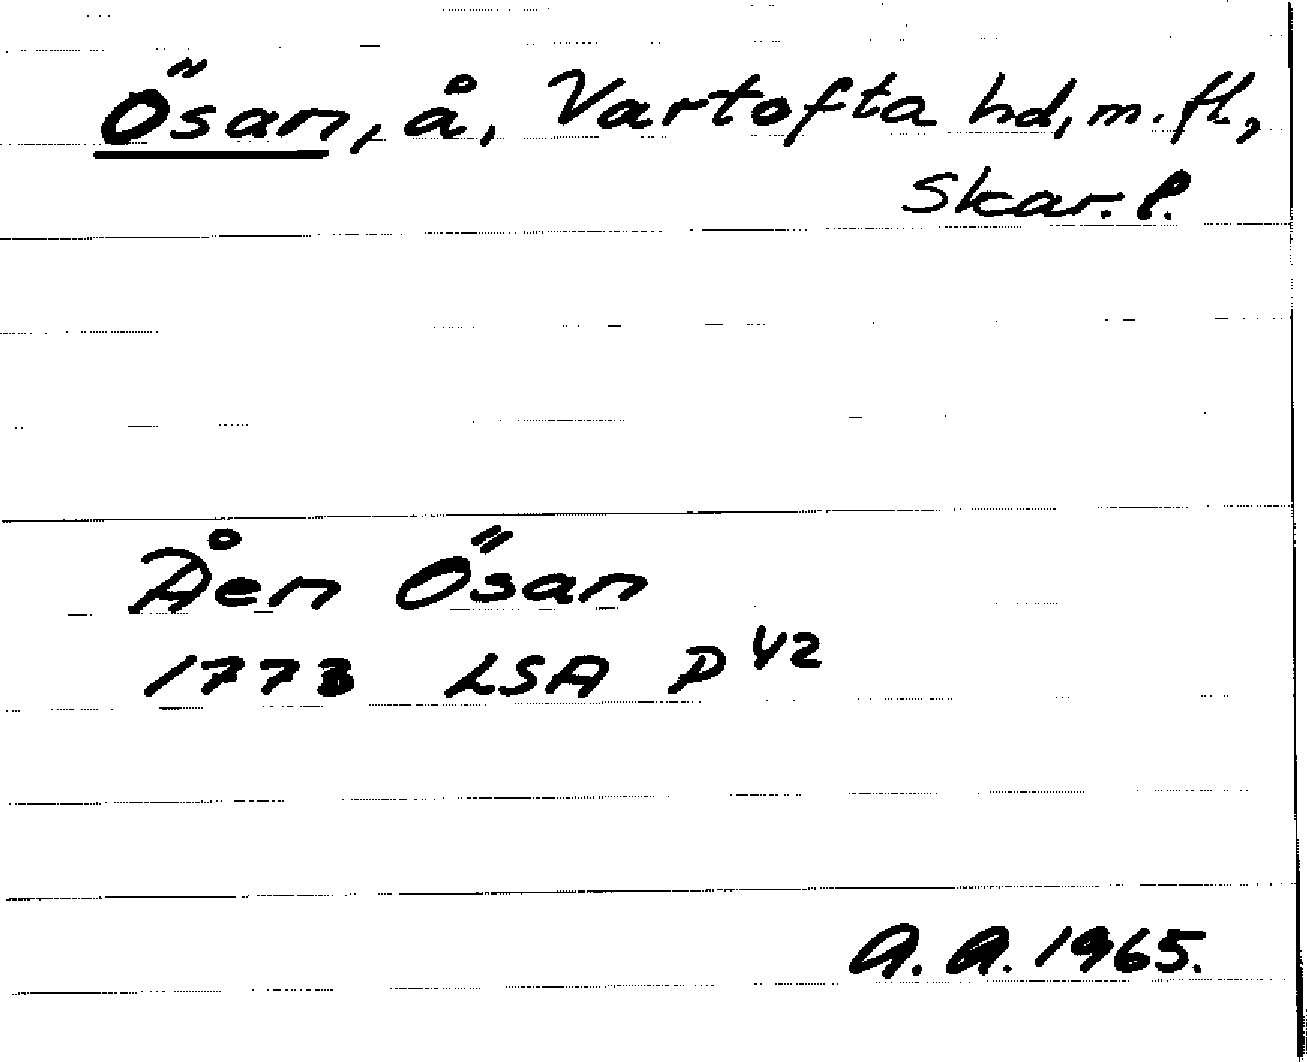 Ösan, å, Vartofta hd, m. fl.,
Skar. l.
Åen Ösan
1773 LSA P 42
A. A. 1965.